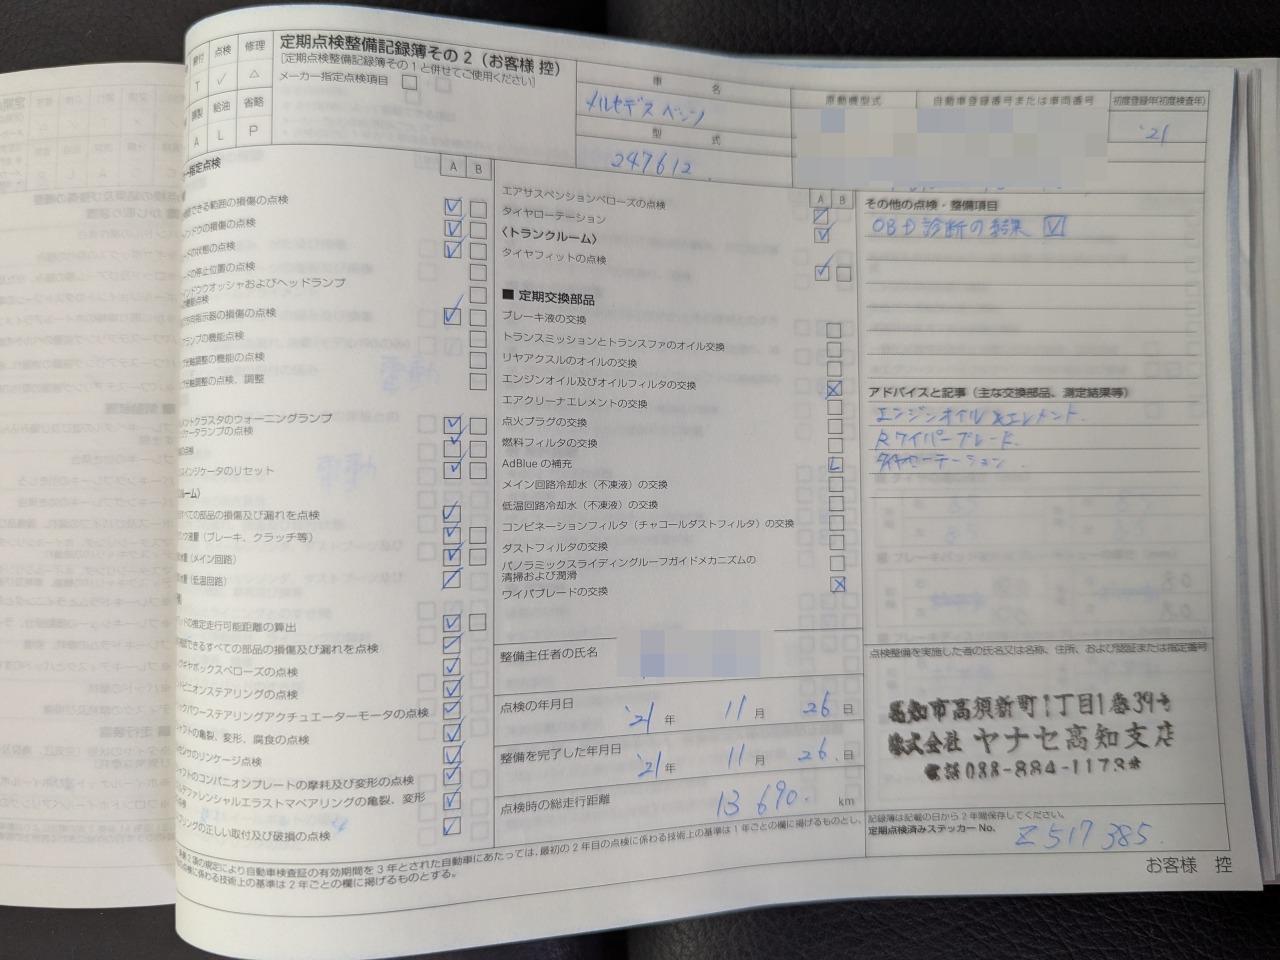 締付
点検
修理
T
✓
△
調整
給油
省略
A
L
P
定期点検整備記録簿その2（お客様 控）
[定期点検整備記録簿その1と併せてご使用ください]
メーカー指定点検項目
車 名
メルセデス ベンツ
型 式
247612
原動機型式
自動車登録番号または車両番号
初度登録年(初度検査年)
'21
ー指定点検
A B
できる範囲の損傷の点検
ンドウの損傷の点検
ードの状態の点検
ードの停止位置の点検
インドウウオッシャおよびヘッドランプ
機能点検
方向指示器の損傷の点検
ランプの機能点検
光軸調整の機能の点検
光軸調整の点検、調整
メントクラスタのウォーニングランプ
ケータランプの点検
の点検
スインジケータのリセット
ルーム〉
すべての部品の損傷及び漏れを点検
ンク液量（ブレーキ、クラッチ等）
水量（メイン回路）
水量（低温回路）
ッドの推定走行可能距離の算出
確認できるすべての部品の損傷及び漏れを点検
ックギヤボックスベローズの点検
ドピニオンステアリングの点検
ックパワーステアリングアクチュエーターモータの点検
ャフトの亀裂、変形、腐食の点検
センサのリンケージ点検
シャフトのコンパニオンプレートの摩耗及び変形の点検
ルデファレンシャルエラストマベアリングの亀裂、変形
点検
プリングの正しい取付及び破損の点検
エアサスペンションベローズの点検
A B
タイヤローテーション
〈トランクルーム〉
タイヤフィットの点検
■ 定期交換部品
ブレーキ液の交換
トランスミッションとトランスファのオイル交換
リヤアクスルのオイルの交換
エンジンオイル及びオイルフィルタの交換
エアクリーナエレメントの交換
点火プラグの交換
燃料フィルタの交換
AdBlue の補充 L
メイン回路冷却水（不凍液）の交換
低温回路冷却水（不凍液）の交換
コンビネーションフィルタ（チャコールダストフィルタ）の交換
ダストフィルタの交換
パノラミックスライディングルーフガイドメカニズムの
清掃および潤滑
ワイパブレードの交換
整備主任者の氏名
点検の年月日
'21 年 11 月 26 日
整備を完了した年月日
'21 年 11 月 26 日
点検時の総走行距離
13690 km
その他の点検・整備項目
OBD 診断の結果
アドバイスと記事（主な交換部品、測定結果等）
エンジンオイル &エレメント.
Rワイパーブレード.
タイヤローテーション.
点検整備を実施した者の氏名又は名称、住所、および認証または指定番号
高知市高須新町1丁目1番39号
株式会社 ヤナセ高知支店
電話088-884-1173
記録簿は記載の日から2年間保存してください。
定期点検済みステッカー No.
Z517385
2項の規定により自動車検査証の有効期間を3年とされた自動車にあたっては、最初の2年目の点検に係わる技術上の基準は1年ごとの欄に掲げるものとし、
点検に係わる技術上の基準は2年ごとの欄に掲げるものとする。
お客様 控